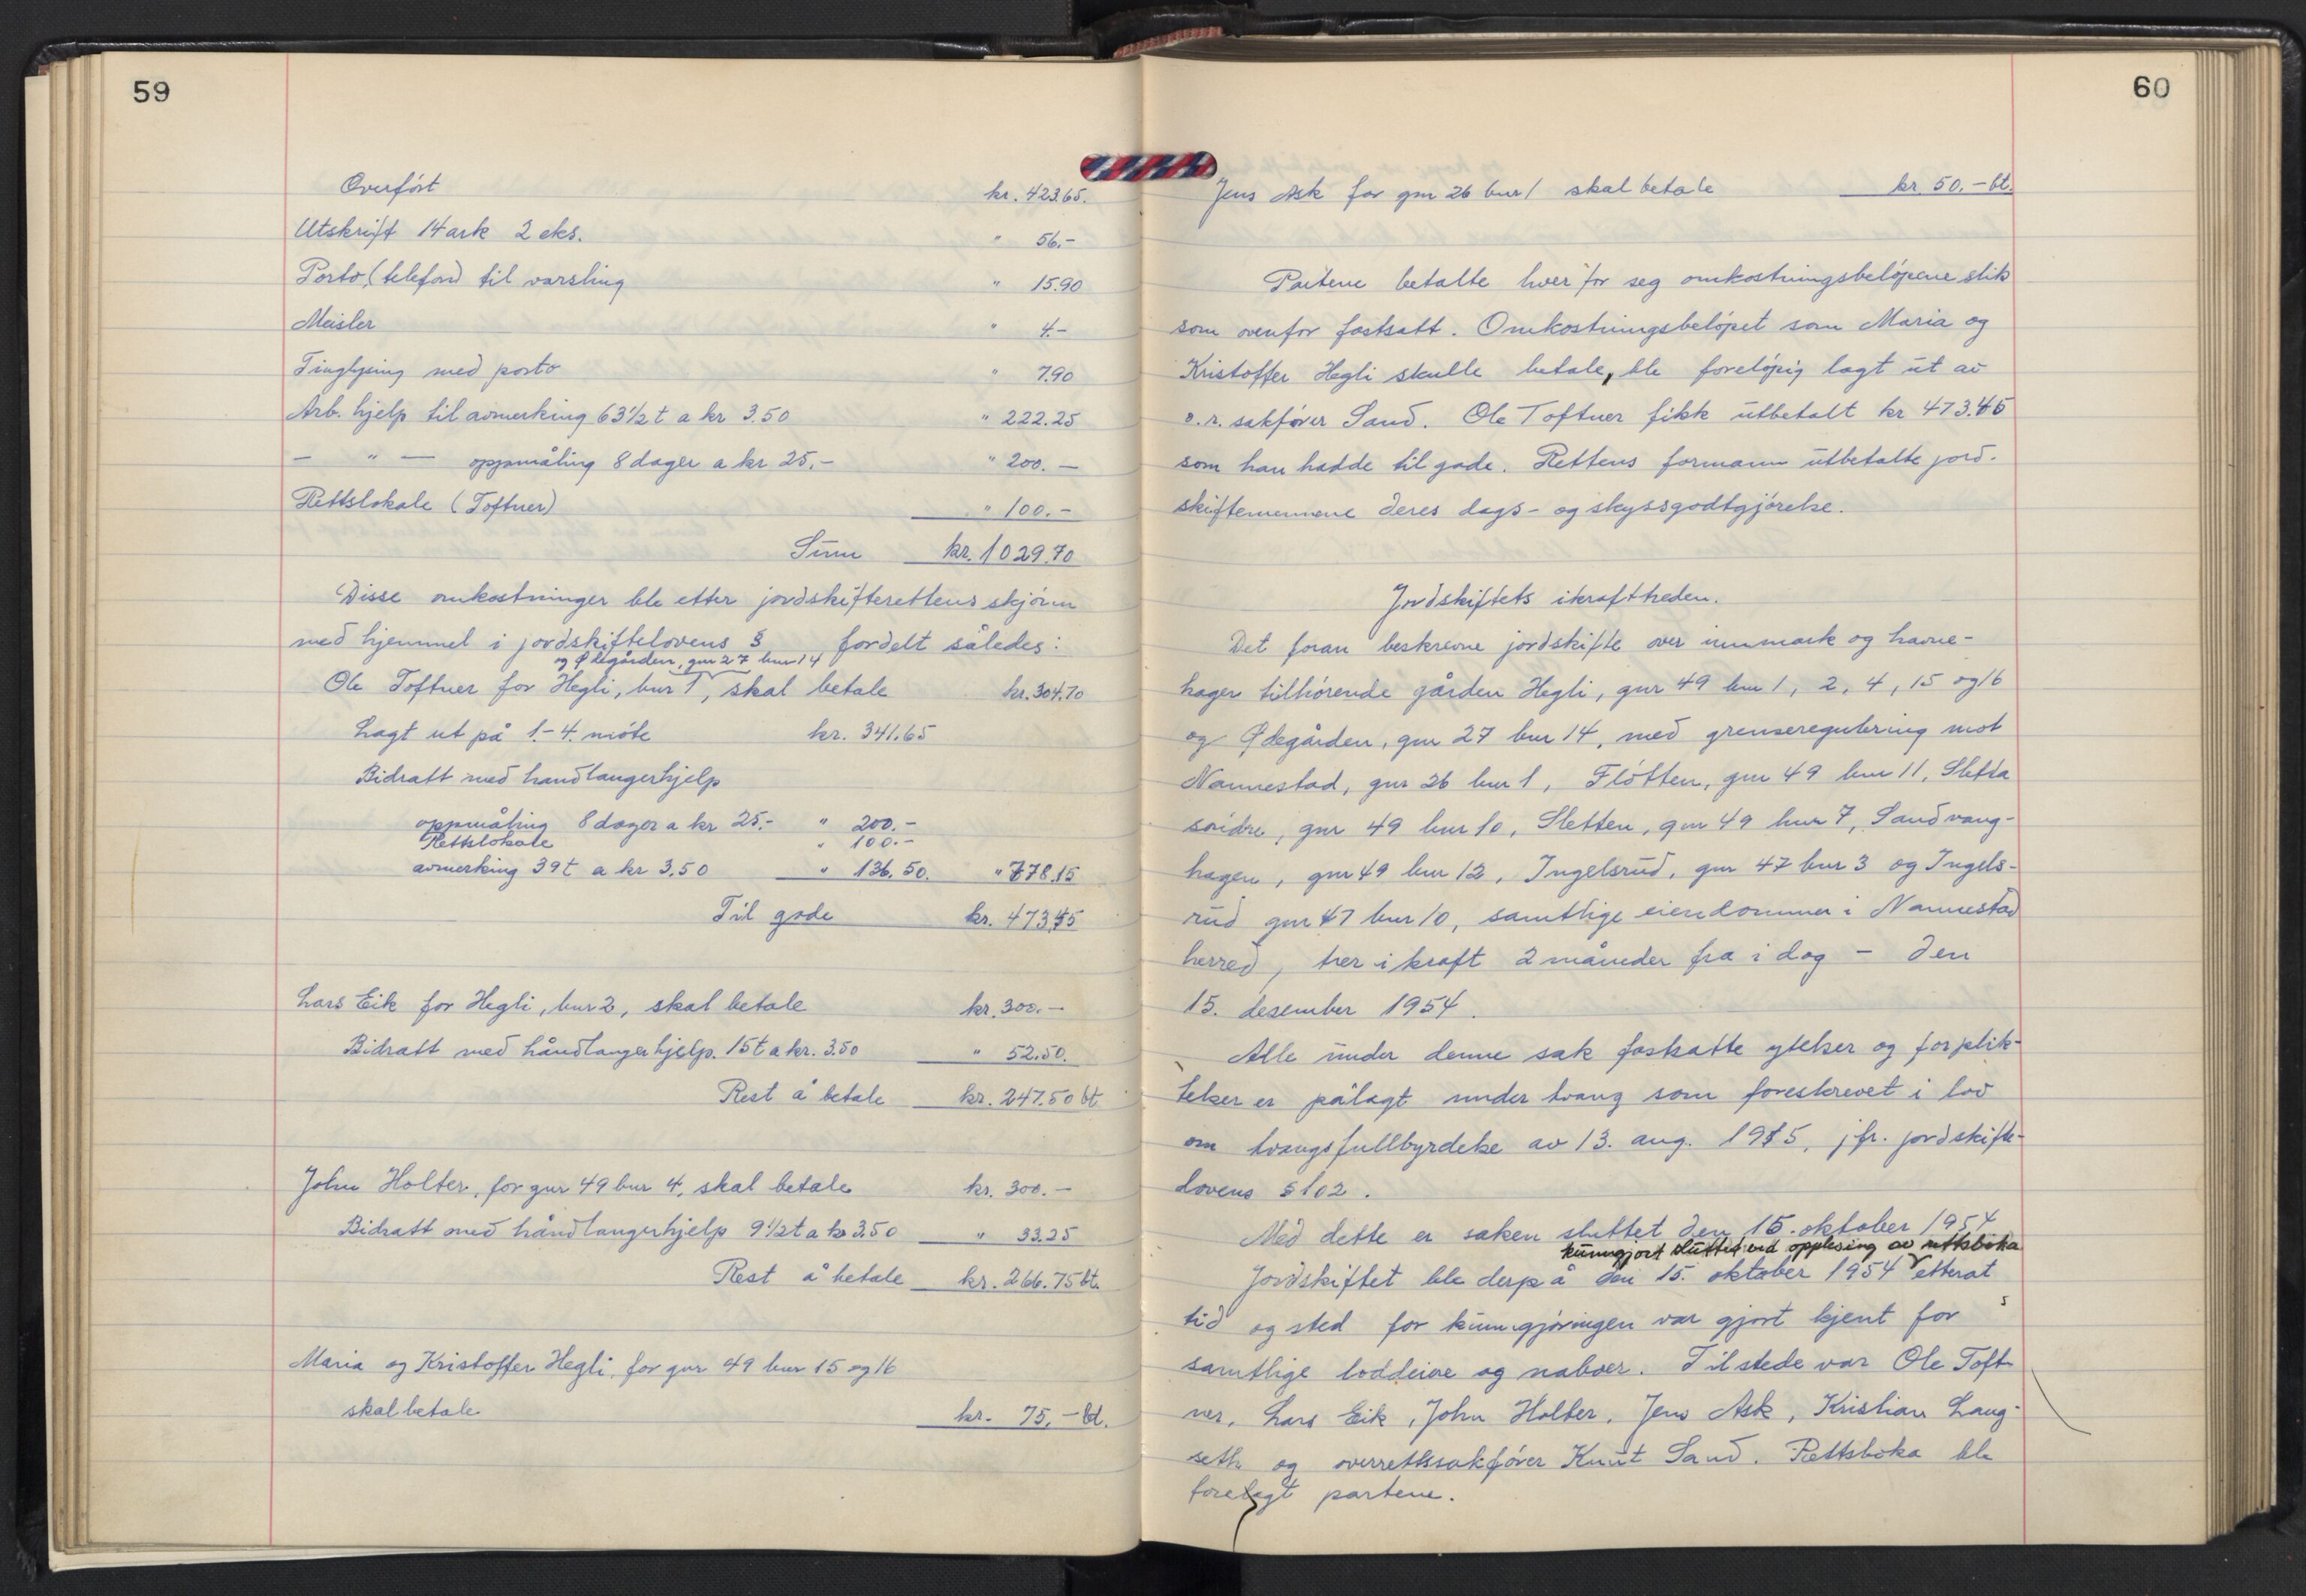 59
Overført kr. 423.65.
Utskrift 14 ark 2 eks. " 56.-
Porto (telefon) til varsling " 15.90
Meisler " 4.-
Tinglysing med porto " 7.90
Arb. hjelp til avmerking 63 1/2 t a kr 3.50 " 222.25
— " — oppmåling 8 dager a kr 25.- " 200.—
Rettslokale (Toftner) " 100.-
Sum kr. 1029.70
Disse omkostninger ble etter jordskifterettens skjønn
med hjemmel i jordskiftelovens § fordelt således:
og Ødegården, gnr 27 bnr 14
Ole Toftner for Hegli, bnr 1, skal betale kr. 304.70
Lagt ut på 1.-4. møte kr. 341.65
Bidratt med handlangerhjelp
oppmåling 8 dager a kr 25.- " 200.-
Rettslokale " 100.-
avmerking 39 t a kr 3.50 " 136.50. " 778.15
Til gode kr. 473.45
Lars Eik for Hegli, bnr 2, skal betale kr. 300.-
Bidratt med håndlangerhjelp. 15 t a kr. 3.50 " 52.50.
Rest å betale kr. 247.50 bt
John Holter, for gnr 49 bnr 4, skal betale kr. 300.-
Bidratt med håndlangerhjelp 9 1/2 t a kr 3.50 " 33.25
Rest å betale kr. 266.75 bt.
Maria og Kristoffer Hegli, for gnr 49 bnr 15 og 16
skal betale kr. 75.- bt.
60
Jens Ask for gnr 26 bnr 1 skal betale kr 50.- bt.
Partene betalte hver for seg omkostningsbeløpene slik
som ovenfor fastsatt. Omkostningsbeløpet som Maria og
Kristoffer Hegli skulle betale, ble foreløpig lagt ut av
o.r. sakfører Sand. Ole Toftner fikk utbetalt kr 473.45
som han hadde til gode. Rettens formann utbetalte jord-
skiftemennene deres dags- og skyssgodtgjørelse.
Jordskiftets ikrafttreden.
Det foran beskrevne jordskifte over innmark og havne-
hager tilhørende gården Hegli, gnr 49 bnr 1, 2, 4, 15 og 16
og Ødegården, gnr 27 bnr 14, med grenseregulering mot
Nannestad, gnr 26 bnr 1, Fløtten, gnr 49 bnr 11, Sletta
søndre, gnr 49 bnr 10, Sletten, gnr 49 bnr 7, Sandvang-
hagen, gnr 49 bnr 12, Ingelsrud, gnr 47 bnr 3 og Ingels-
rud gnr 47 bnr 10, samtlige eiendommer i Nannestad
herred, trer i kraft 2 måneder fra i dag - den
15. desember 1954.
Alle under denne sak fastsatte ytelser og forplik-
telser er pålagt under tvang som foreskrevet i lov
om tvangsfullbyrdelse av 13. aug. 1915, jfr. jordskifte-
lovens § 102.
Med dette er saken sluttet den 15. oktober 1954
kunngjort sluttet ved opplesing av rettsboka
Jordskiftet ble derpå den 15. oktober 1954 etterat
tid og sted for kunngjøringen var gjort kjent for
samtlige loddeiere og naboer. Tilstede var Ole Toft-
ner, Lars Eik, John Holter, Jens Ask, Kristian Laug-
seth og overrettssakfører Knut Sand. Rettsboka ble
forelagt partene.